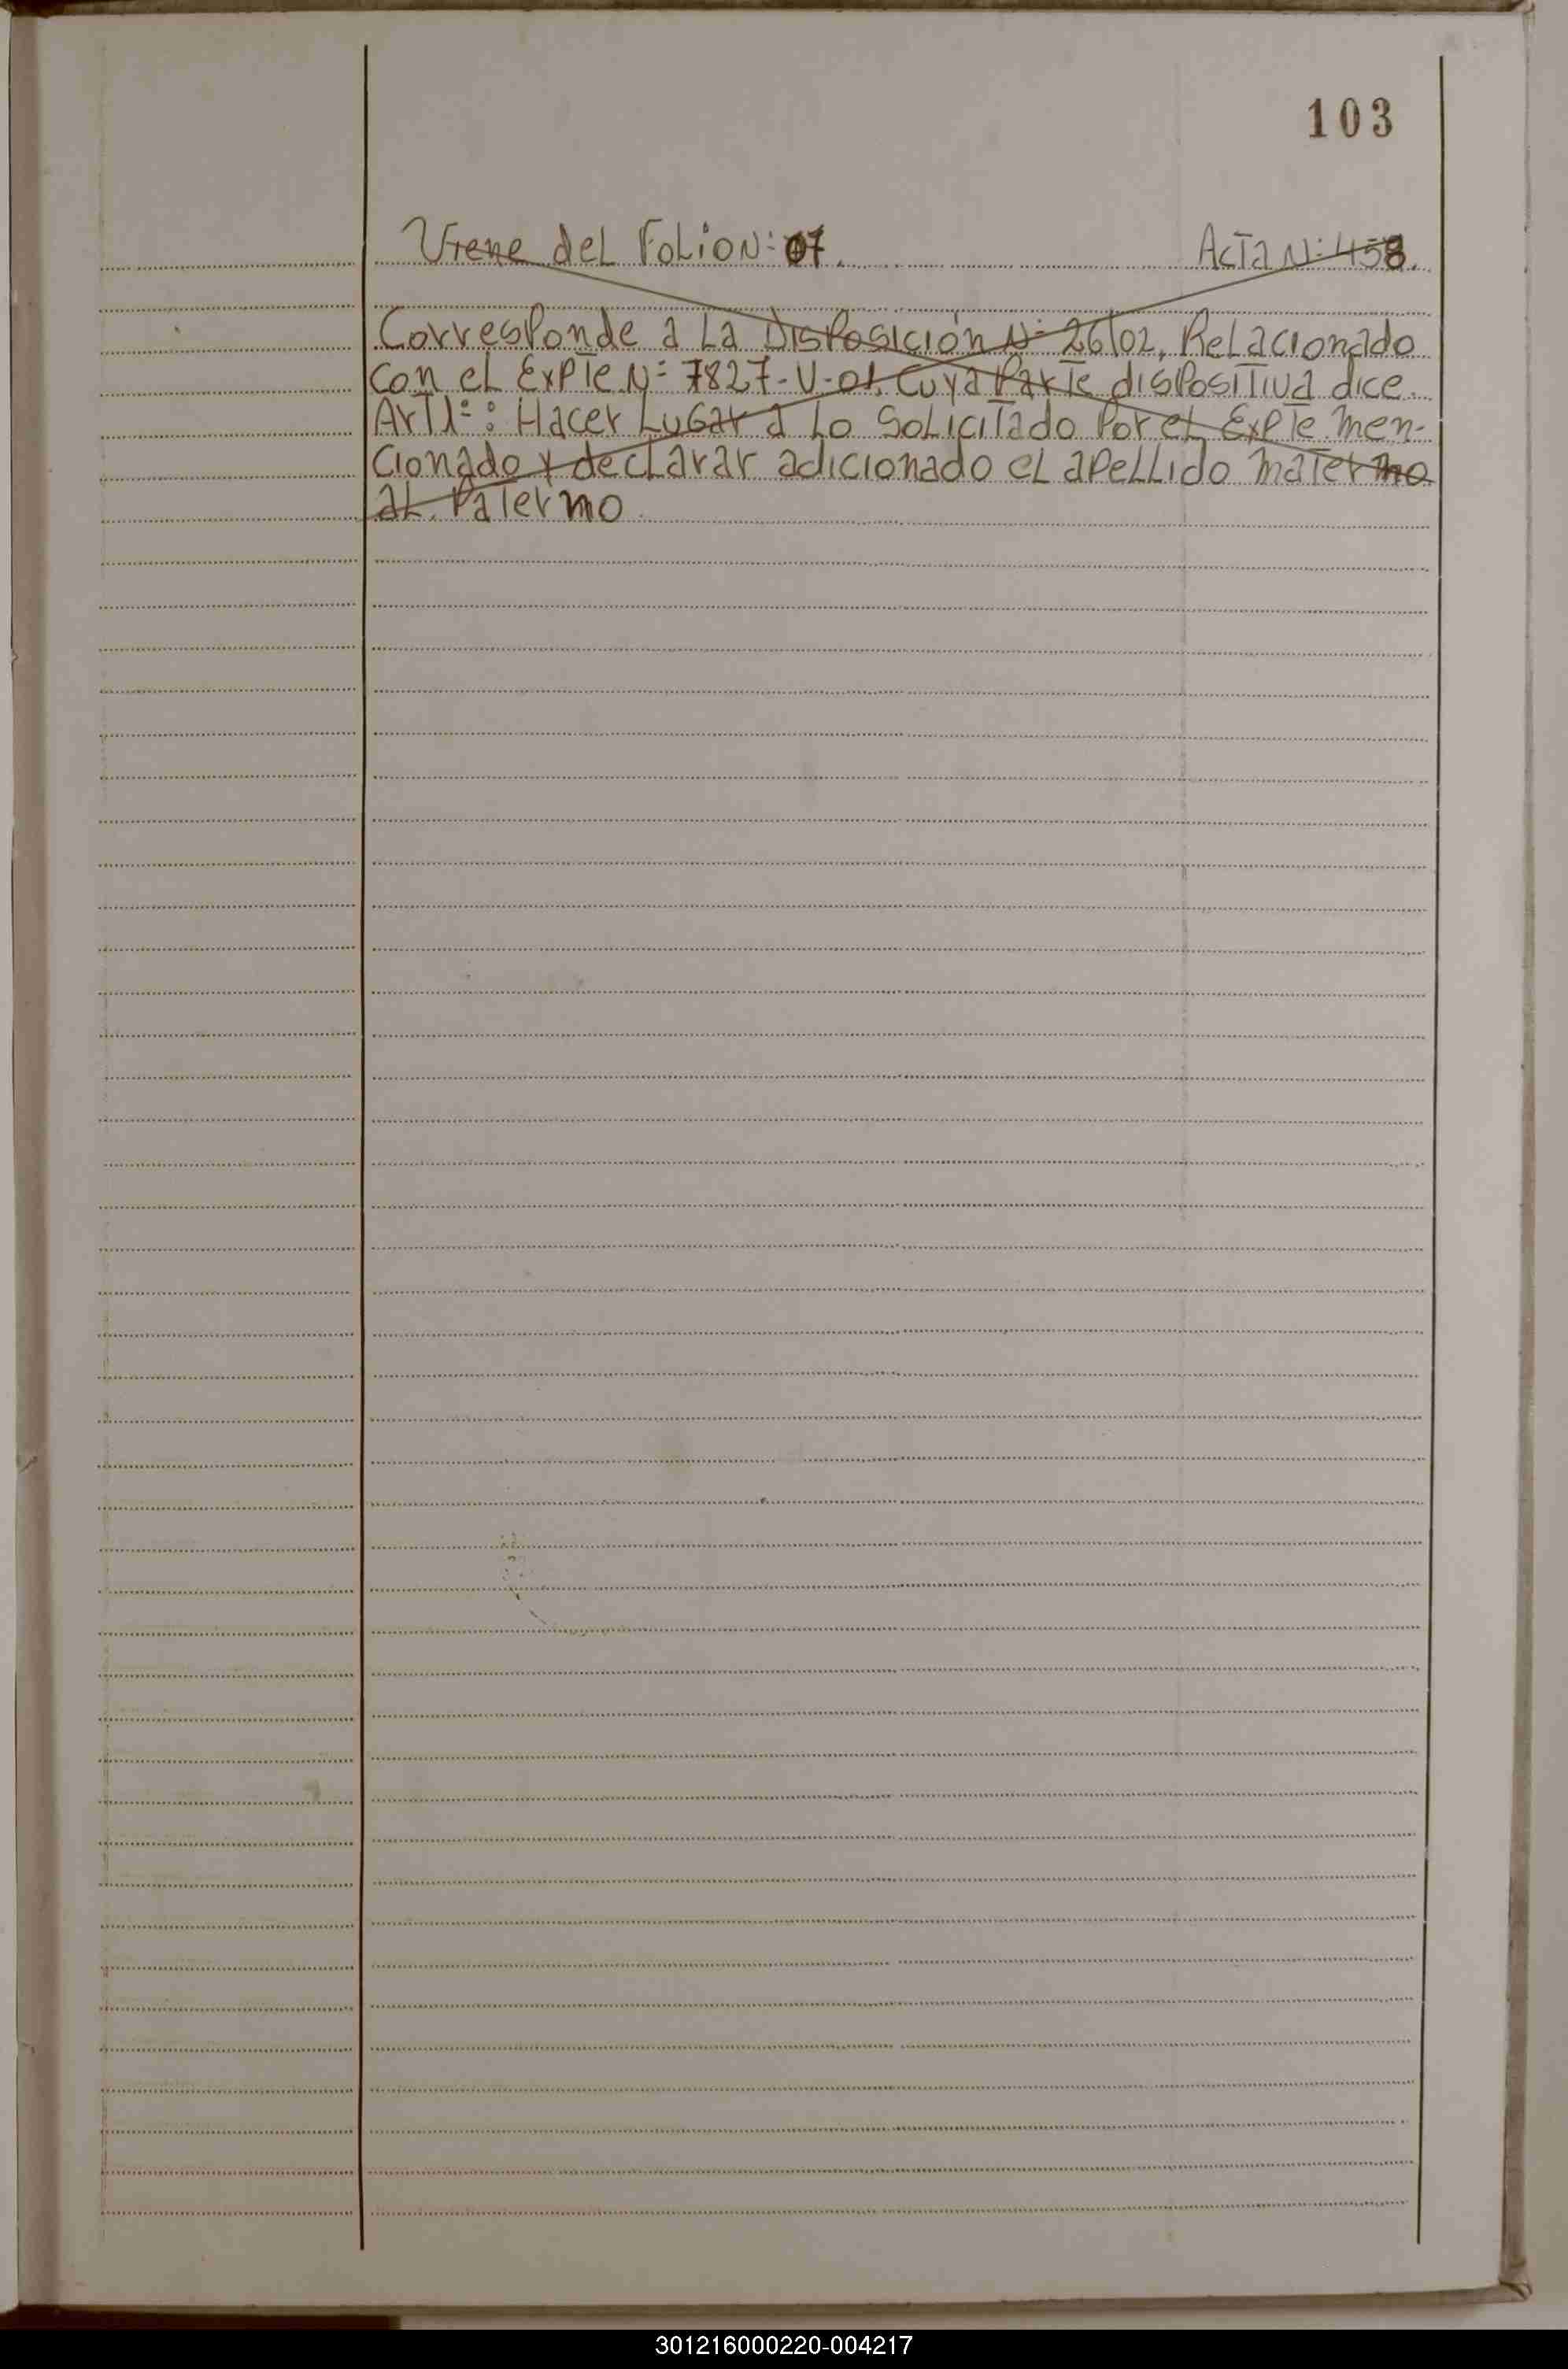 103
Viene del Folio N: 07. Acta N: 458.
Corresponde a La Disposición N: 26/02, Relacionado
con el Expte N: 7827-V-01. Cuya Parte dispositiva dice.
Art 1º: Hacer Lugar a Lo solicitado Por el Expte. men-
cionado y declarar adicionado el apellido matermo
al Patermo
301216000220-004217